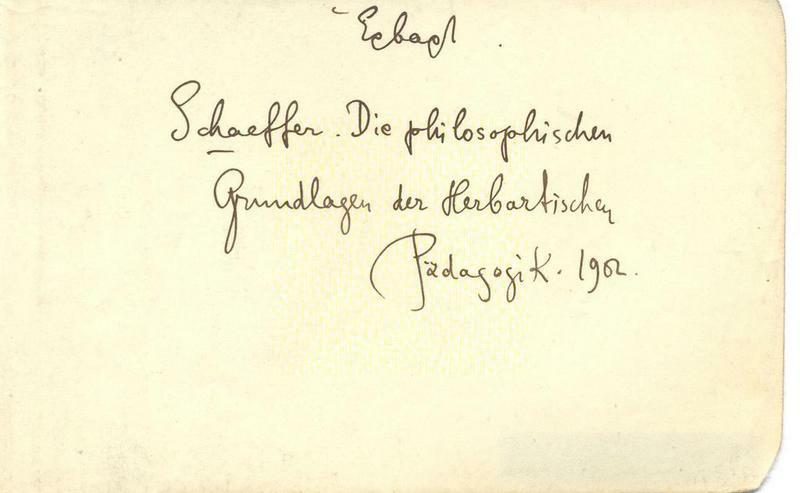 Schaeffer. Die philosophischen
Grundlagen der Herbartischen
Pädagogik. 1902.